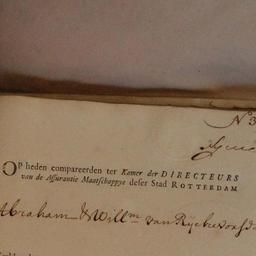 N° 3
OP heden compareerden ter Kamer der DIRECTEURS
van de Assurantie Maatschappye deser Stad ROTTERDAM
Abraham & Will^m van